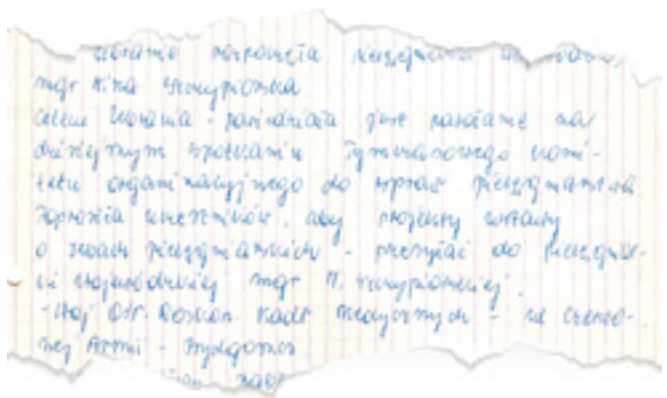 zebranie rozpoczęła pielęgniarka
mgr
celem zebrania - powiedziała jest powołanie na
dzisiejszym spotkaniu Tymczasowego Komi-
tetu organizacyjnego do spraw pielęgniarstwa
Poprosiła uczestników, aby projekty ustawy
o izbach pielęgniarskich - przesyłać do pielęgniar-
ki wojewódzkiej mgr
- Woj. Ośr. Doskon. Kadr Medycznych - ul. Czerwo-
nej Armii - Bydgoszcz